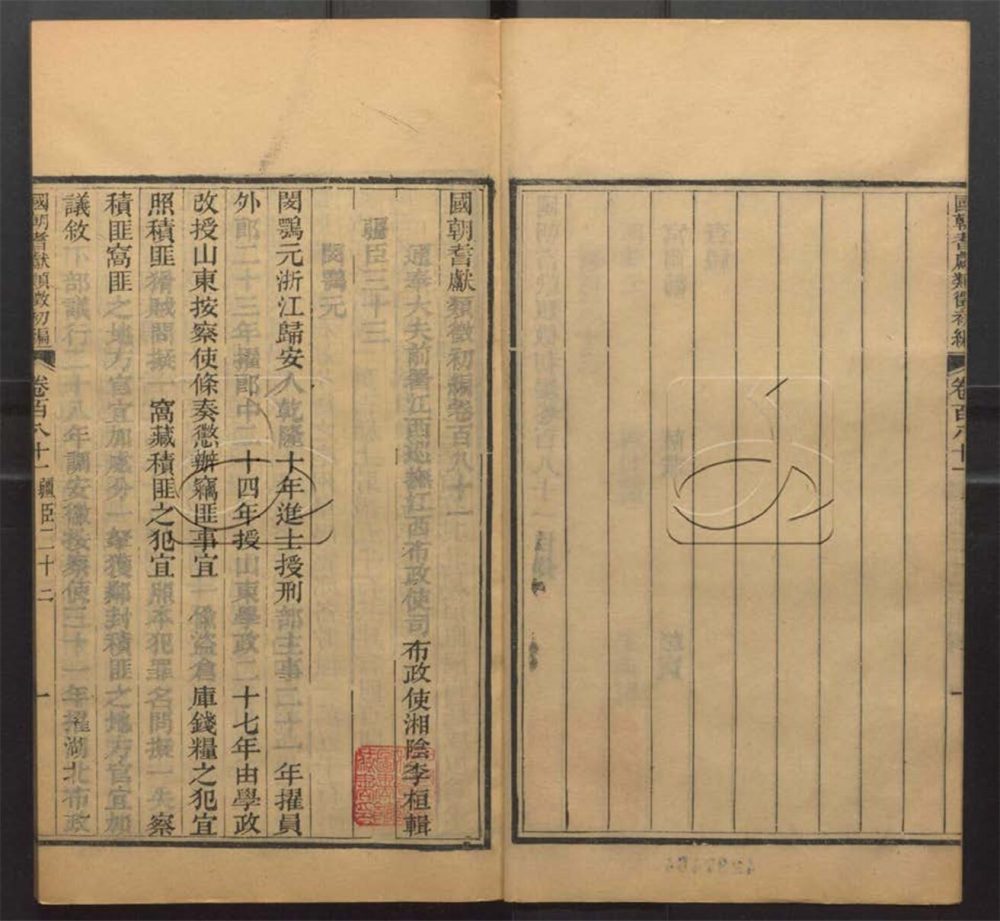 國朝耆獻類徵初編
卷百八十一
國朝耆獻類徵初編卷百八十一
通奉大夫前署江西巡撫江西布政使司布政使湘陰李桓輯
疆臣三十三
閔鶚元
閔鶚元浙江歸安人乾隆十年進士授刑部主事二十一年擢員
外郎二十三年擢郎中二十四年授山東學政二十七年由學政
改授山東按察使條奏懲辦竊匪事宜一偷盜倉庫錢糧之犯宜
照積匪猾賊問擬一窩藏積匪之犯宜照本犯罪名問擬一失察
積匪窩匪之地方官宜加處分一拏獲鄰封積匪之地方官宜加
議敘下部議行二十八年調安徽按察使三十一年擢湖北布政
國朝耆獻類徵初編
卷百八十一
疆臣三十二
一